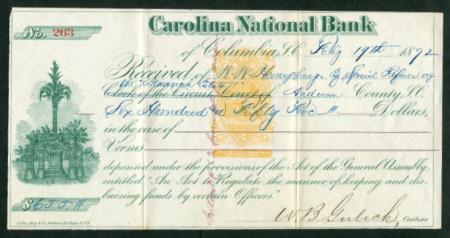 Carolina National Bank
No. 263
of Columbia, S.C. Feby 19th 1892
Received of W. W. Humphreys Special Referee of
Clerk of the Circuit Court of Anderson County, S.C.
Six Hundred & Fifty Five Dollars,
in the case of
Versus
deposited under the provisions of the Act of the General Assembly,
entitled "An Act to Regulate the manner of keeping and dis-
bursing funds by certain Officers."
$655.
Cashier